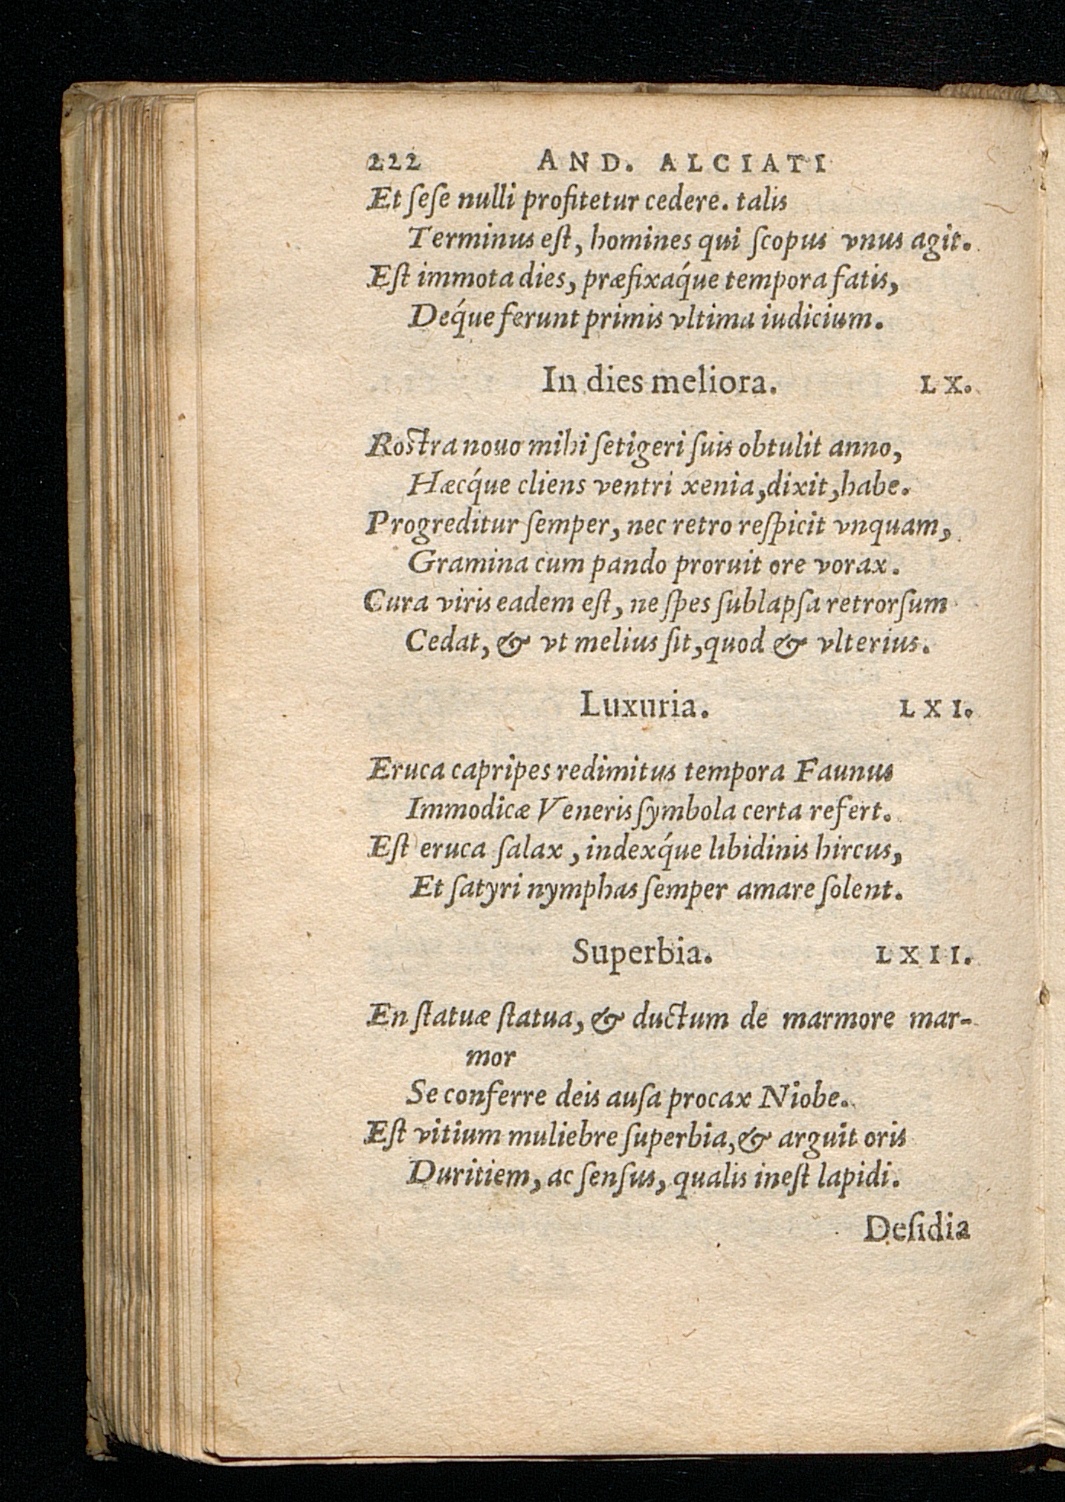 222 AND. ALCIATI
Et ſeſe nulli profitetur cedere. talis
Terminus eſt, homines qui ſcopus vnus agit.
Eſt immota dies, præfixaq́ue tempora fatis,
Deq́ue ferunt primis vltima iudicium.
In dies meliora. LX.
Roſtra nouo mihi ſetigeri ſuis obtulit anno,
Hæcq́ue cliens ventri xenia, dixit, habe.
Progreditur ſemper, nec retro reſpicit vnquam,
Gramina cum pando proruit ore vorax.
Cura viris eadem eſt, ne ſpes ſublapſa retrorſum
Cedat, & vt melius ſit, quod & vlterius.
Luxuria. LXI.
Eruca capripes redimitus tempora Faunus
Immodicæ Veneris ſymbola certa refert.
Eſt eruca ſalax, indexq́ue libidinis hircus,
Et ſatyri nymphas ſemper amare ſolent.
Superbia. LXII.
En ſtatuæ ſtatua, & ductum de marmore mar-
mor
Se conferre deis auſa procax Niobe.
Eſt vitium muliebre ſuperbia, & arguit oris
Duritiem, ac ſenſus, qualis ineſt lapidi.
Deſidia